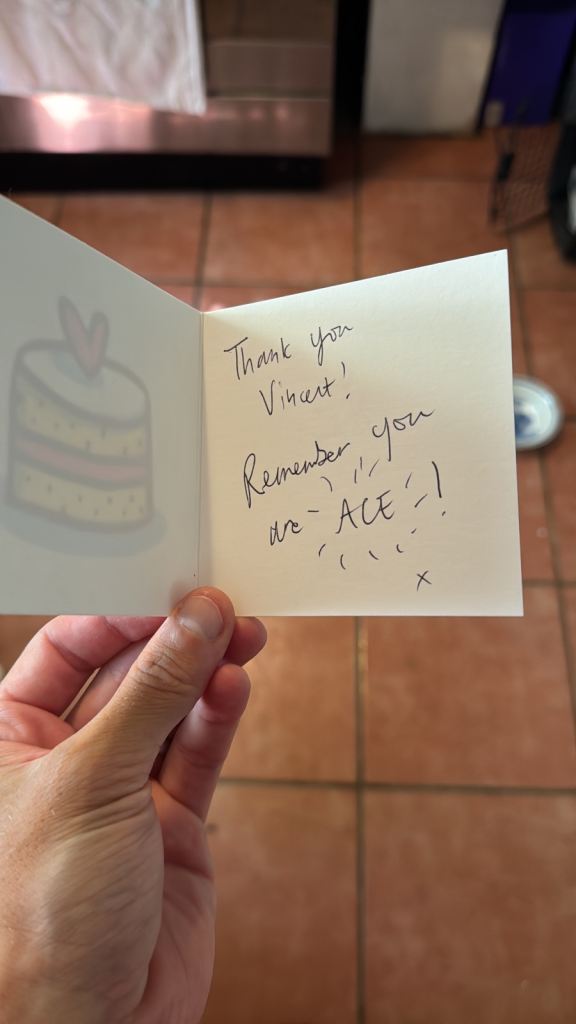 Thank you
Vincent!
Remember you
are ACE!
x